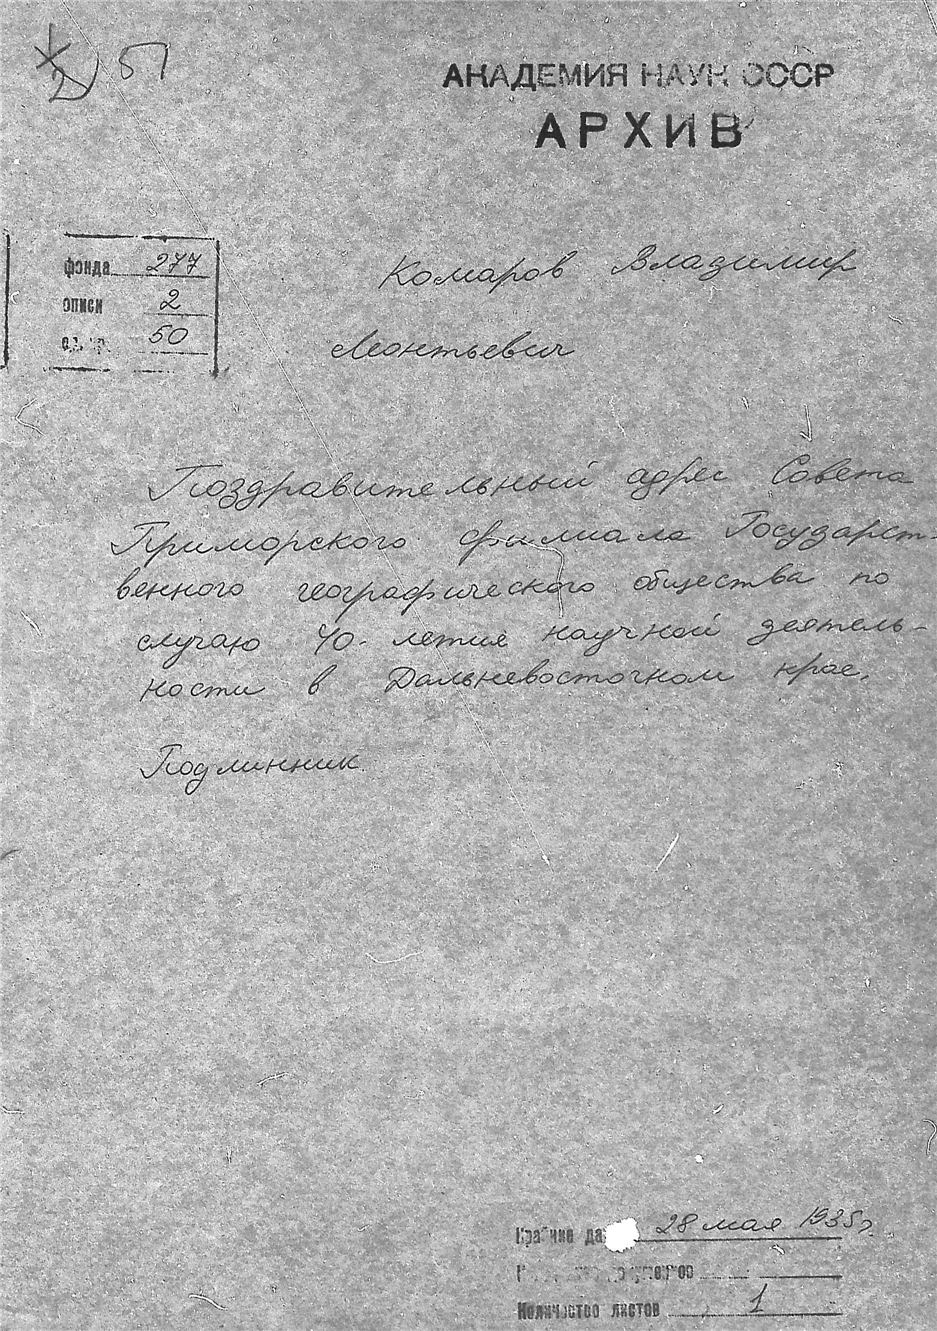 51
АКАДЕМИЯ НАУК СССР
АРХИВ
фонда 277
описи 2
ед. хр. 50
Комаров Владимир
Леонтьевич
Поздравительный адрес Совета
Приморского филиала Государст-
венного географического общества по
случаю 40-летия научной деятель-
ности в Дальневосточном крае.
Подлинник.
Крайние да 28 мая 1935 г.
Количество листов 1